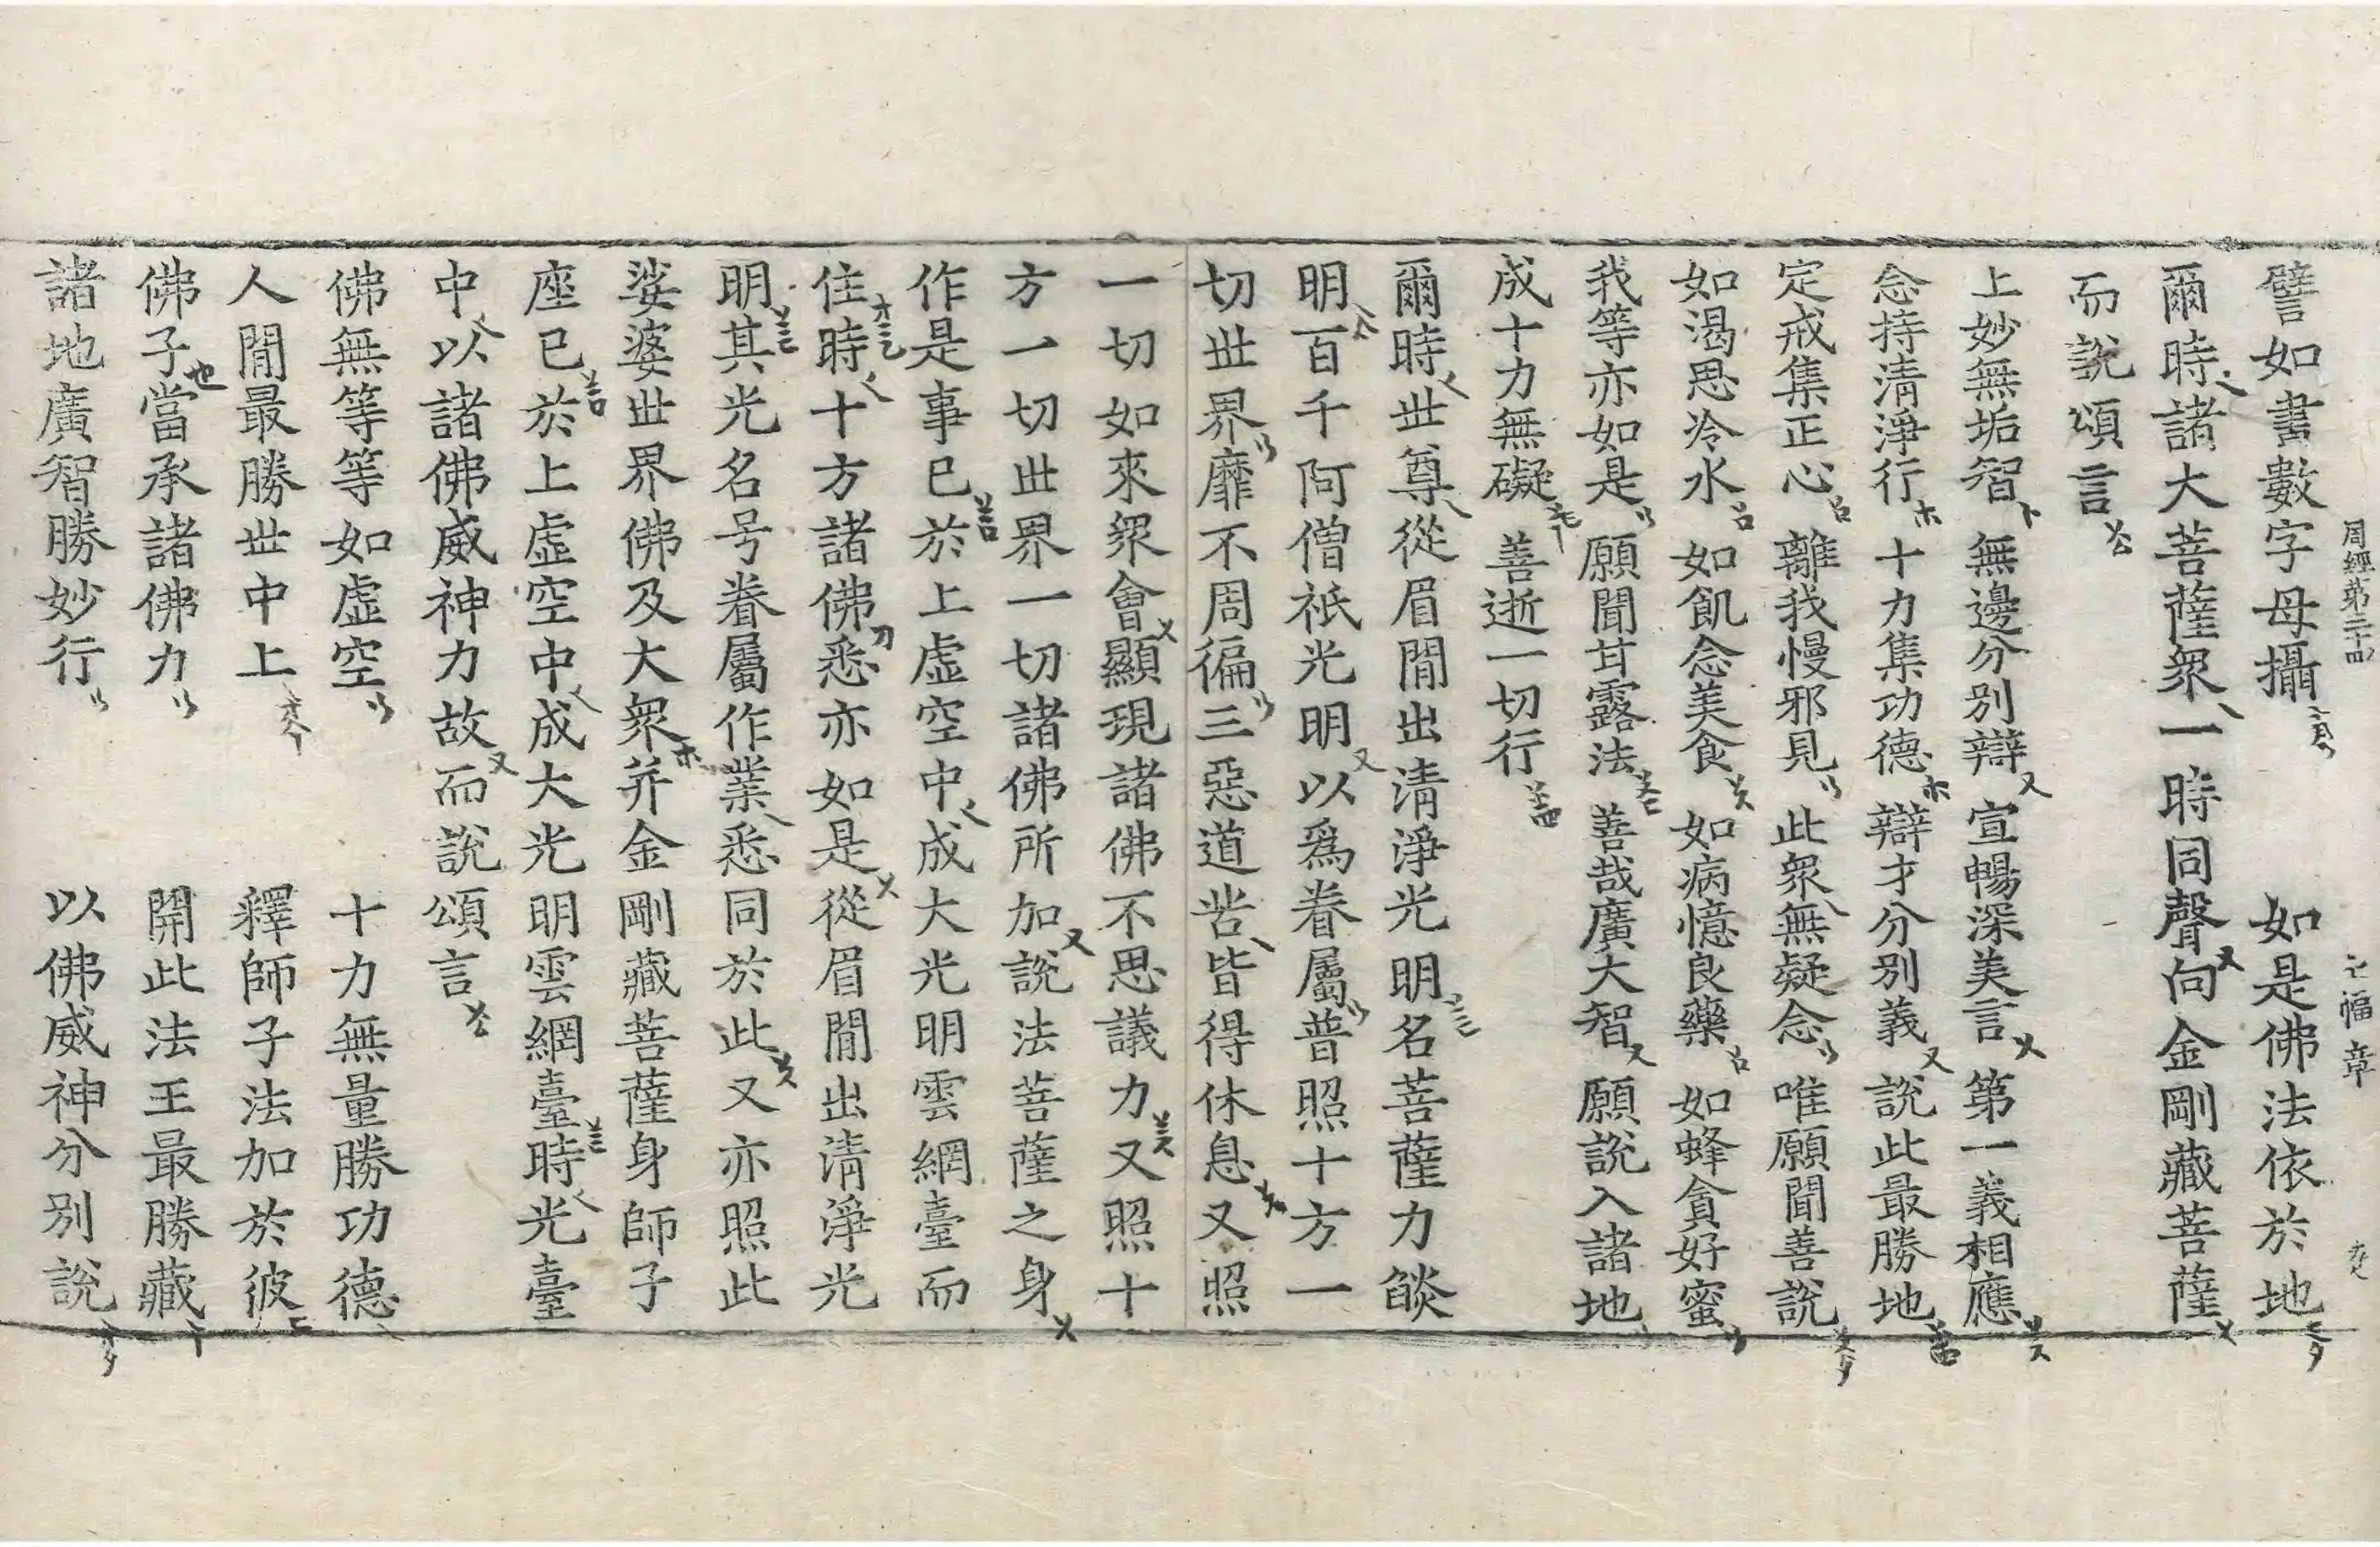 周經第三十四 七幅 章
譬如書數字母攝 如是佛法依於地
爾時諸大菩薩衆一時同聲向金剛藏菩薩
而說頌言
上妙無垢智 無邊分別辯 宣暢深美言 第一義相應
念持清淨行 十力集功德 辯才分別義 說此最勝地
定戒集正心 離我慢邪見 此衆無疑念 唯願聞善說
如渴思冷水 如飢念美食 如病憶良藥 如蜂貪好蜜
我等亦如是 願聞甘露法 善哉廣大智 願說入諸地
成十力無礙 善逝一切行
爾時世尊從眉閒出清淨光明名菩薩力燄
明百千阿僧祇光明以爲眷屬普照十方一
切世界靡不周徧三惡道苦皆得休息又照
一切如來衆會顯現諸佛不思議力又照十
方一切世界一切諸佛所加說法菩薩之身
作是事已於上虛空中成大光明雲網臺而
住時十方諸佛悉亦如是從眉閒出清淨光
明其光名号眷屬作業悉同於此又亦照此
娑婆世界佛及大衆并金剛藏菩薩身師子
座已於上虛空中成大光明雲網臺時光臺
中以諸佛威神力故而說頌言
佛無等等如虛空 十力無量勝功德
人閒最勝世中上 釋師子法加於彼
佛子當承諸佛力 開此法王最勝藏
諸地廣智勝妙行 以佛威神分別說